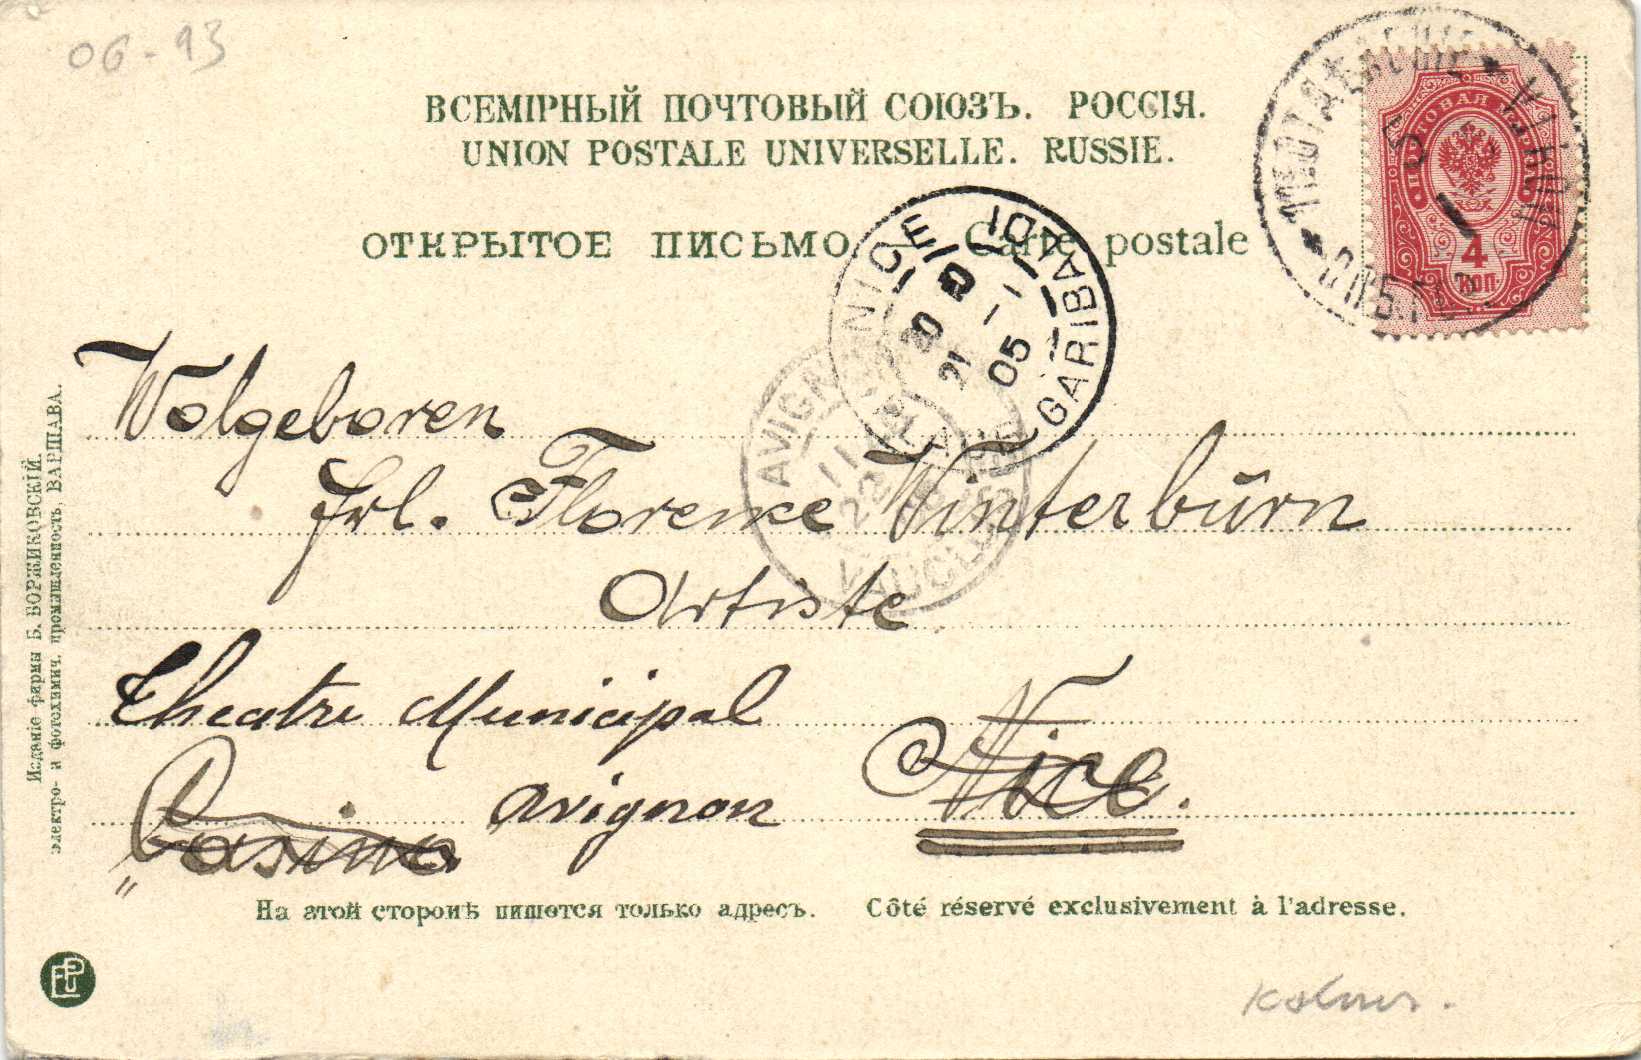 06-93
ВСЕМІРНЫЙ ПОЧТОВЫЙ СОЮЗЪ. РОССІЯ.
UNION POSTALE UNIVERSELLE. RUSSIE.
ОТКРЫТОЕ ПИСЬМО. Carte postale
ПОЧТОВАЯ
4
КОП
NICE GARIBALDI
21 - 1
05
AVIGNON
VAUCLUSE
Wolgeboren
Frl. Florence Winterbūrn
Artiste
Theatre Municipal
Casino Avignon Nice.
На этой сторонѣ пишется только адресъ. Côté réservé exclusivement à l'adresse.
Изданіе фирмы Б. БОРЖИКОВСКІЙ.
электро- и фотохимич. промышленность, ВАРШАВА.